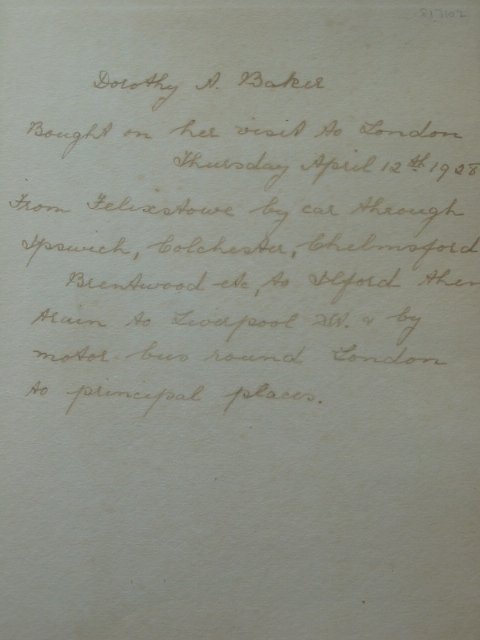 Dorothy A. Baker
Bought on her visit to London
Thursday April 12th 1928
From Felixstowe by car through
Ipswich, Colchester, Chelmsford
Brentwood etc, to Ilford then
train to Liverpool St. & by
motor bus round London
to principal places.